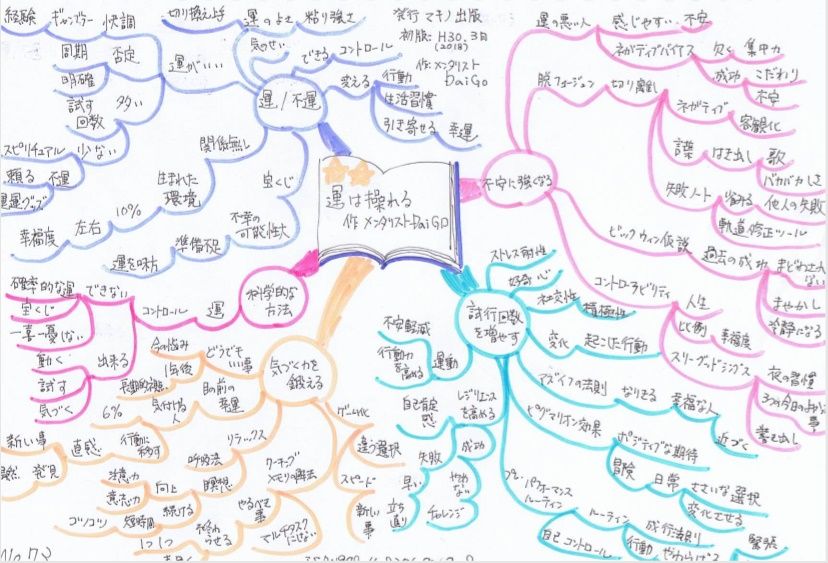 運は操れる
作 メンタリストDaiGo
発行 マキノ出版
初版:H30.3月
(2018)
作:メンタリスト
DaiGo
運/不運
運がいい
経験
ギャンブラー
快調
切り換え上手
運のよさ
粘り強さ
気のせい
できる
コントロール
変える
行動
生活習慣
引き寄せる
幸運
周期
否定
明確
試す
回数
多い
少ない
スピリチュアル
頼る
不運
関係無し
生まれた
環境
10%
左右
幸福度
宝くじ
不幸の
可能性大
準備不足
運を味方
不安に強くなる
運の悪い人
感じやすい
不安
ネガティブバイアス
欠く
集中力
脱フュージョン
切り離し
成功
こだわり
不安
ネガティブ
客観化
言葉
はき出し
歌
バカバカしさ
失敗ノート
省みる
他人の失敗
軌道修正ツール
ビックウィン仮説
過去の成功
まどわされ
ない
まやかし
冷静になる
コントローラビリティ
人生
比例
幸福度
スリーグッドシングス
夜の習慣
3つ今日のよい
事
書き出し
試行回数
を増やす
ストレス耐性
好奇心
社交性
積極性
変化
起こした行動
アズイフの法則
なりきる
幸福な人
近づく
ピグマリオン効果
ポジティブな期待
冒険
日常
ささいな選択
変化させる
プレ・パフォーマンス
ルーティン
ルーティン
成行法則
緊張
行動
やわらげる
自己コントロール
運動
不安軽減
行動力
を高める
レジリエンス
を高める
自己肯定
感
成功
失敗
やれ
ない
チャレンジ
早い
立ち
直り
科学的な
方法
運
コントロール
できない
確率的な運
宝くじ
一喜一憂ない
出来る
動く
試す
気づく
気づく力を
鍛える
どうでも
いい事
今の悩み
1年後
目の前の
幸運
気付ける
人
6%
リラックス
行動に
移す
直感
新しい事
発見
呼吸法
ワーキング
メモリの解放
瞑想
向上
注意力
意志力
続ける
短時間
コツコツ
やるべき
事
マルチタスク
にしない
終わ
らせる
1つ1つ
ゲーム化
違う選択
スピード
新しい
事
No.73